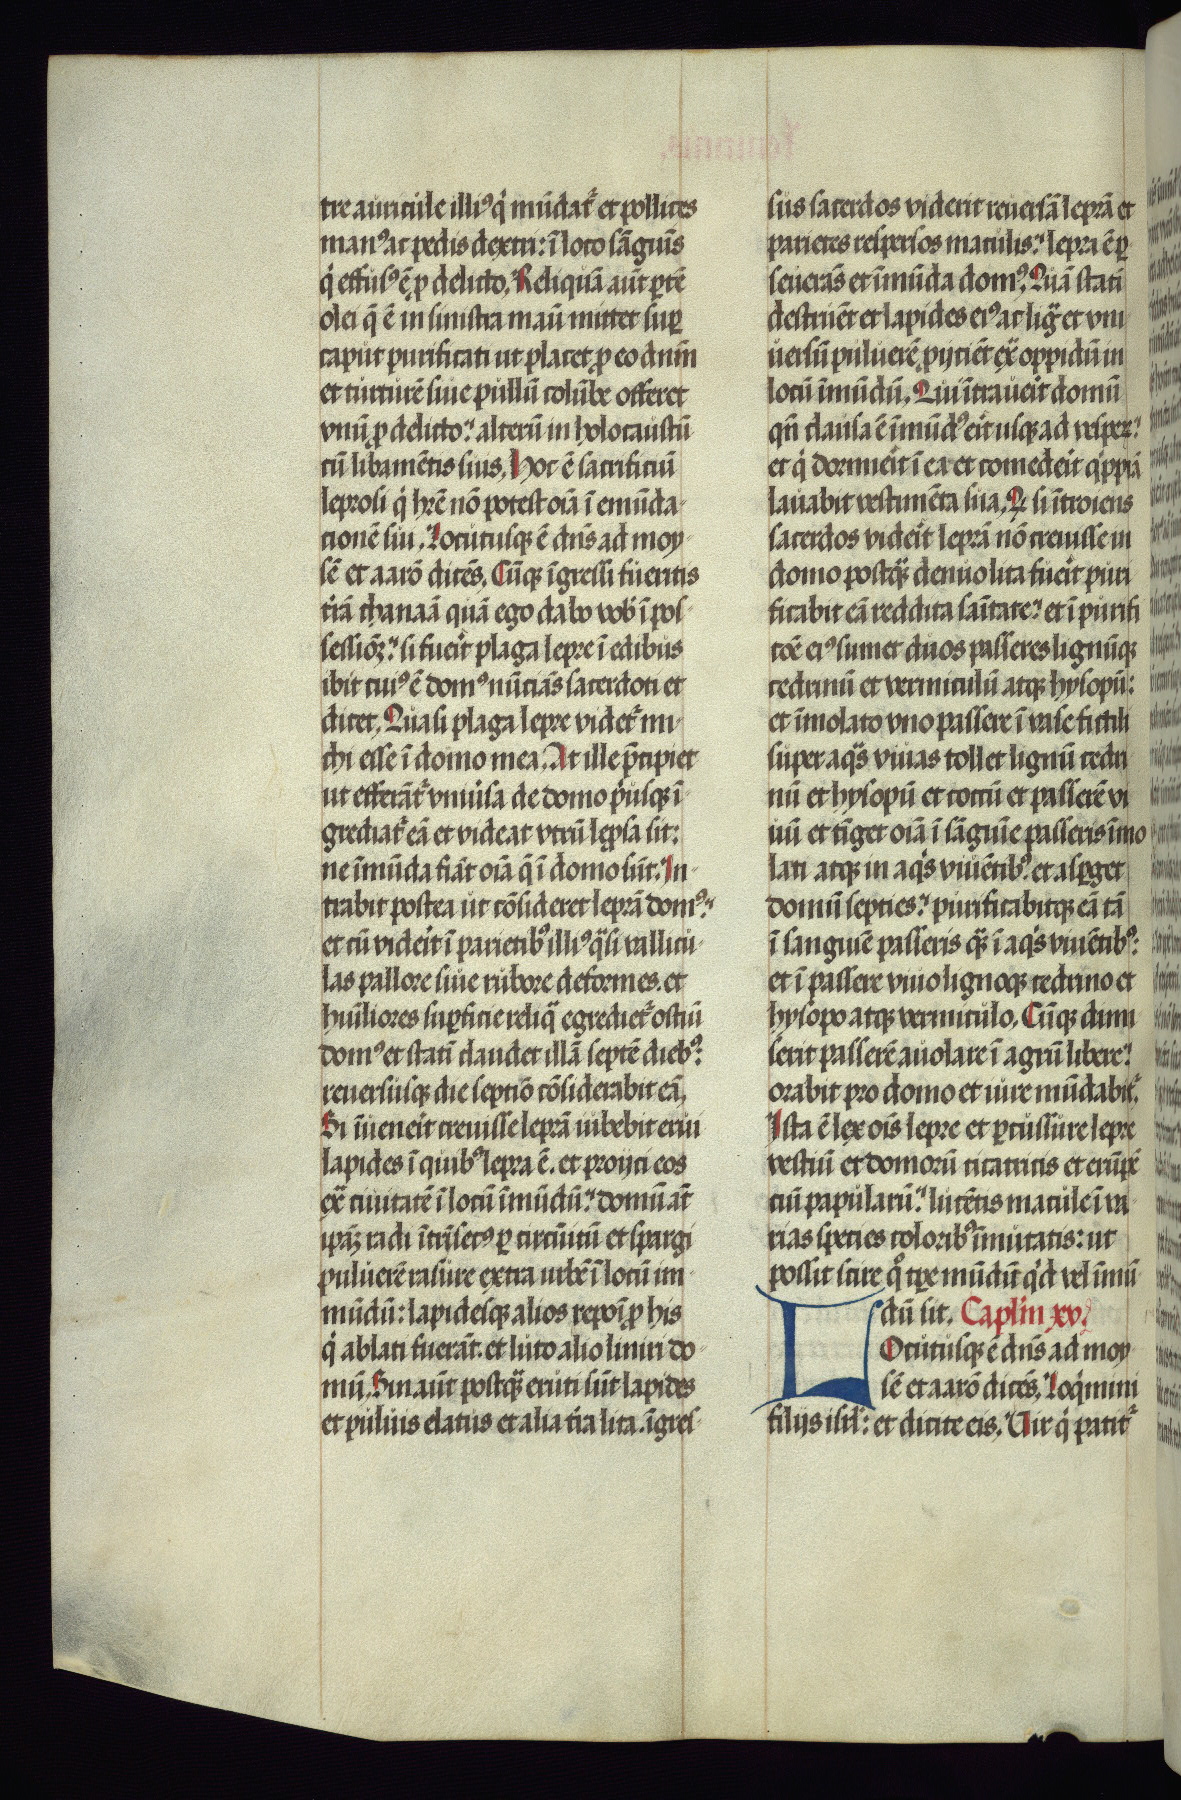 tre auricule illiꝰ q̇ mūdat᷑ et pollices
manꝰ ac pedis dextri: ī loco sāguīs
q̇ effusꝰ ē ꝓ delicto. Reliquā aūt ꝑtē
olei q̄ ē in sinistra manū mittet suꝑ
caput purificati ut placet ꝓ eo dnm̄
et turturē siue pullū colūbe offeret
vnū ꝓ delicto: alterū in holocaustū
cū libamētis suis. Hoc ē sacrificiū
leprosi q̇ hr̄e nō potest oīa ī emūda-
tionē sui. Locutusqꝫ ē dn̄s ad moy-
sē et aarō dicēs. Cūqꝫ īgressi fueritis
t̄rā chanaā quā ego dabo vob̄ ī pos-
sessiōꝫ: si fueīt plaga lepre ī edibus
ibit cuiꝰ ē domꝰ nūciās sacerdoti et
dicet. Quasi plaga lepre videt᷑ mi-
chi esse ī domo mea. At ille p̄cipiet
ut efferāt᷑ vniūsa de domo p̓usqꝫ ī-
grediat᷑ eā et videat vtrū lepsa sit:
ne īmūda fiāt oīa q̄ ī domo sūt. In-
trabit postea ut cōsideret leprā domꝰ:
et cū videīt ī parietibꝰ illiꝰ q̈si vallicu-
las pallore siue rubore deformes. et
huīliores suꝑficie reliq̈ egrediet᷑ ostiū
domꝰ et statī claudet illā septē diebꝰ:
reuersusqꝫ die septīo cōsiderabit eā.
Si īueneīt creuisse leprā iubebit erui
lapides ī quibꝰ lepra ē. et proijci eos
ex̄ ciuitatē ī locū īmūdū: domū aūt
ip̄aꝫ radi ītrīsecꝰ ꝑ circuitū et spargi
puluerē rasure extra urbē ī locū im-
mūdū: lapidesqꝫ alios repoī ꝓ his
q̇ ablati fuerāt. et luto alio liniri do-
mū. Sin aūt postq̈ꝫ eruti sūt lapides
et puluis elatus et alia t̄ra lita. īgres-
sus sacerdos viderit reuersā leprā et
parietes respersos maculis: lepra ē ꝑ
seuerās et īmūda domꝰ. Quā statī
destruēt et lapides eiꝰ ac lig̈ et vni
uersū puluerē ꝓijciēt ex̄ oppidū in
locū īmūdū. Qui ītraueīt domū
qn̄ clausa ē īmūdꝰ eīt usqꝫ ad vesper:
et q̇ dormieīt ī ea et comedeīt q̇ppiā
lauabit vestimēta sua. Q̇ si ītroiens
sacerdos videīt leprā nō creuisse in
domo postq̈ꝫ denuo lita fueīt puri
ficabit eā reddita sāitate: et ī purifi
cōe eiꝰ sumet duos passeres lignūqꝫ
cedrinū et vermiculū atqꝫ hysopū:
et īmolato vno passere ī vase fictili
super aq̈s viuas tollet lignū cedri
nū et hysopū et coccū et passerē vi
uū et tīget oīa ī sāguīe passeris īmo
lati atqꝫ in aq̇s viuētibꝰ. et asꝑget
domū septies: purificabitqꝫ eā tā
ī sanguīe passeris q̈ꝫ ī aq̇s viuētibꝰ:
et ī passere viuo lignoqꝫ cedrino et
hysopo atqꝫ vermiculo. Cūqꝫ dimi
serit passerē auolare ī agrū libere:
orabit pro domo et iure mūdabit᷑.
Ista ē lex oīs lepre et ꝑcussure lepre
vestiū et domorū cicatricis et erūpē
ciū papularū: lucētis macule ī va-
rias species coloribꝰ īmutatis: ut
possit scire qͦ tꝑe mūdū q̇d vel īmū
dū sit. Caplm̄ xv.
LOcutusqꝫ ē dn̄s ad moy
sē et aarō dicēs. Loq̇mini
filijs isrl̄: et dicite eis. Vir q̇ patit᷑